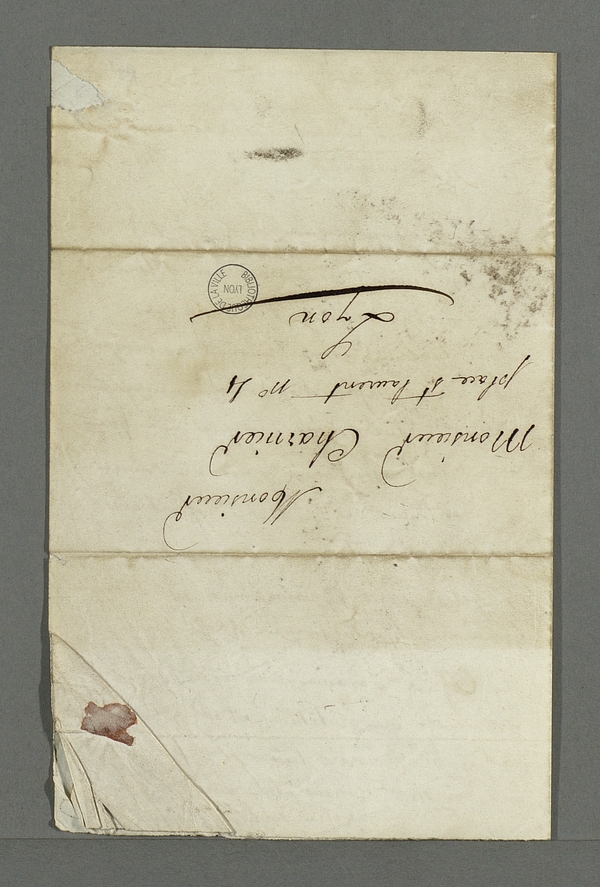 Monsieur
Monsieur Charnier
place st laurent no 4
Lyon
BIBLIOTHEQUE DE LA VILLE
LYON